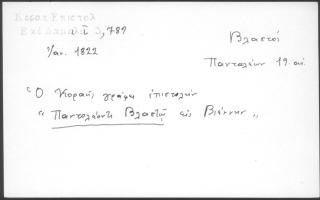 Κοραή Επιστολ
Εκδ Δαμαλᾶ 3, 787
1/αυ. 1822
Βλαστοί
Πανταλέων 19. αι.
"Ο Κοραῆς γράφει ἐπιστολήν
"Πανταλέοντι Βλαστῷ εἰς Βιέννην"